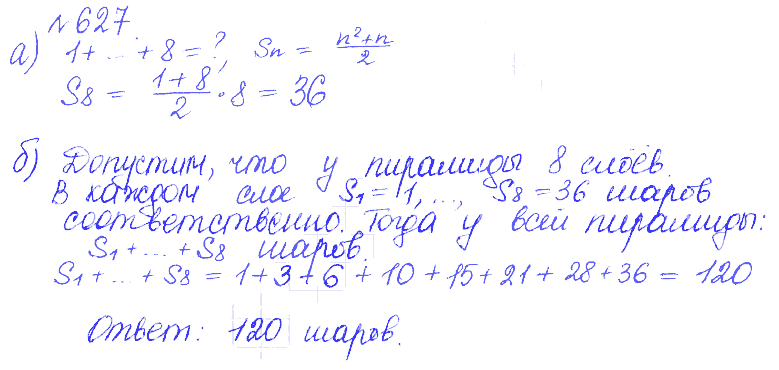 №627.
а) 1+...+8=?, Sn = n²+n/2
S8 = 1+8/2 · 8 = 36
б) Допустим, что у пирамиды 8 слоёв.
В каждом слое S1=1,..., S8=36 шаров
соответственно. Тогда у всей пирамиды:
S1+...+S8 шаров.
S1+...+S8 = 1+3+6+10+15+21+28+36 = 120
Ответ: 120 шаров.